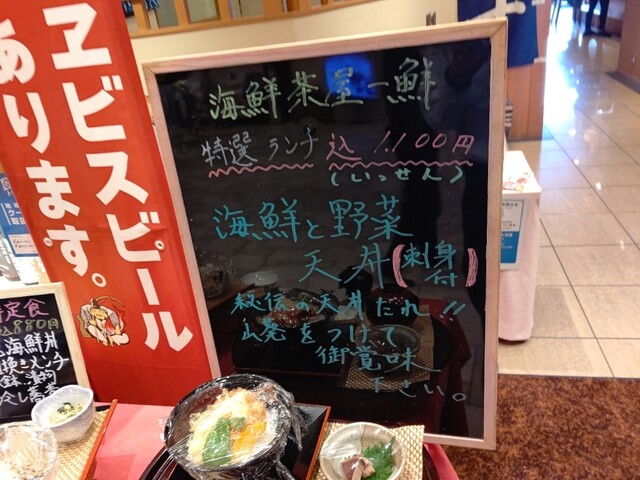 ヱビスビール
あります。
海鮮茶屋一鮮
特選ランチ 込 1.100円
(いっせん)
海鮮と野菜
天丼(刺身付)
秘伝の天丼たれ!!
山発をつけて
御賞味
下さい。
定食
込880円
海鮮丼